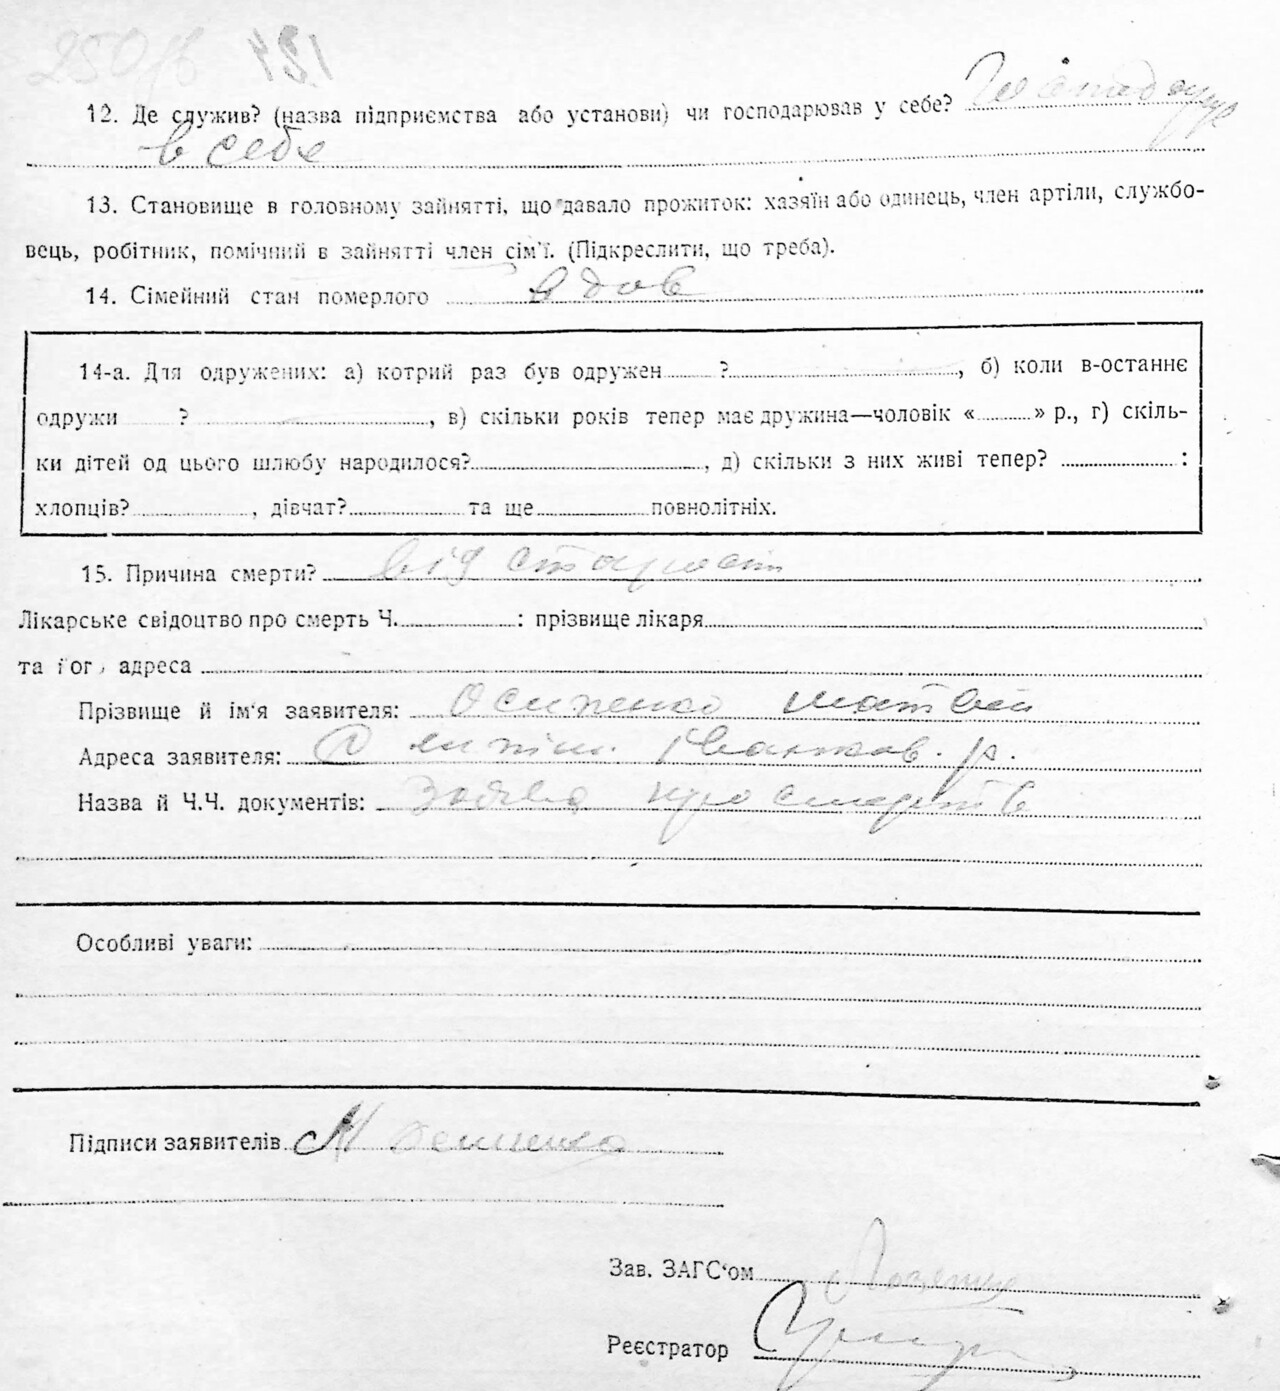 12. Де служив? (назва підприємства або установи) чи господарював у себе?
в себе
13. Становище в головному зайнятті, що давало прожиток: хазяїн або одинець, член артіли, службо-
вець, робітник, помічний в зайнятті член сім'ї. (Підкреслити, що треба).
14. Сімейний стан померлого вдов
14-а. Для одружених: а) котрий раз був одружен ?, б) коли в-останнє
одружи ?, в) скільки років тепер має дружина—чоловік « » р., г) скіль-
ки дітей од цього шлюбу народилося?, д) скільки з них живі тепер? :
хлопців? , дівчат? та ще повнолітніх.
15. Причина смерти? від старости
Лікарське свідоцтво про смерть Ч. : прізвище лікаря
та його адреса
Прізвище й ім'я заявителя: Осипенко Матвей
Адреса заявителя: Іванков. р.
Назва й Ч.Ч. документів: Заява про смерть
Особливі уваги:
Підписи заявителів М
Зав. ЗАГС'ом
Реєстратор